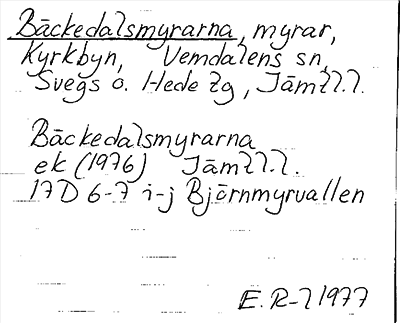 Bäckedalsmyrarna, myrar,
Kyrkbyn, Vemdalens sn,
Svegs o. Hede tg, Jämtl. l.
Bäckedalsmyrarna
ek (1976) Jämtl. l.
17D 6-7 i-j Björnmyrvallen
E. R-l 1977